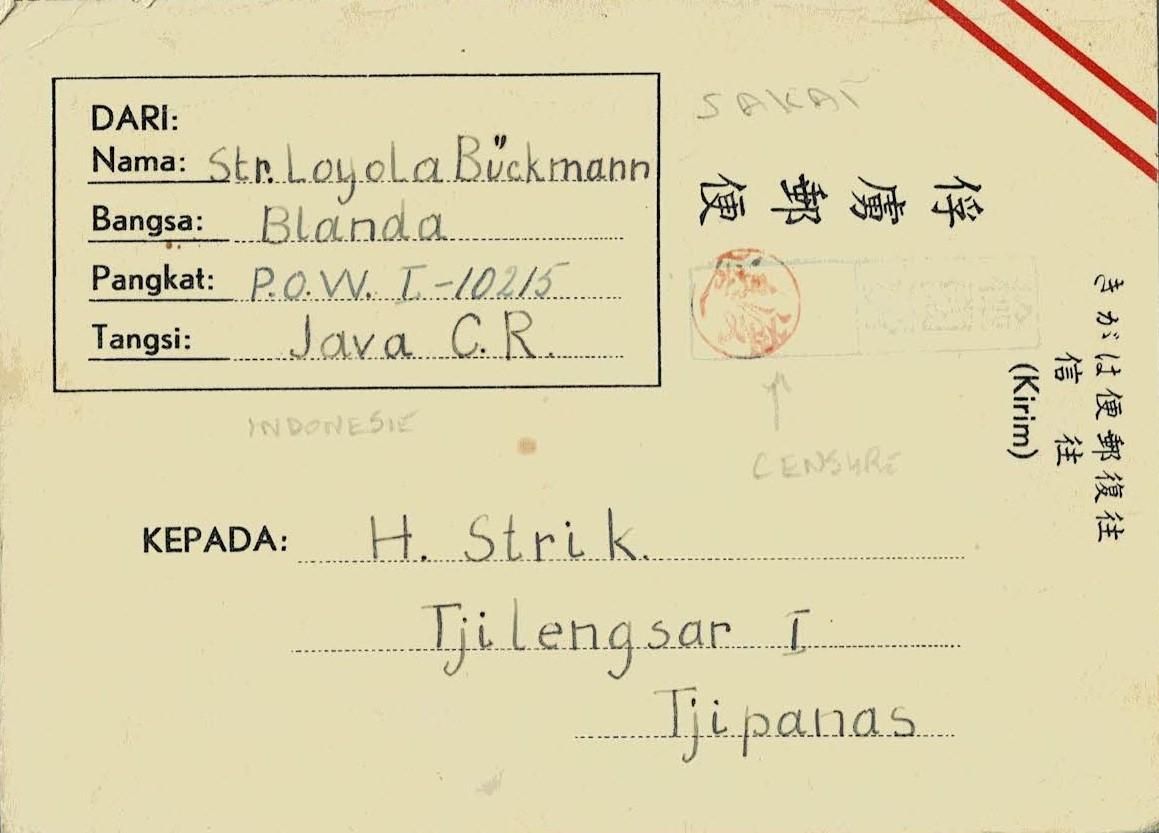 DARI:
Nama: Str. Loyola Bückmann
Bangsa: Blanda
Pangkat: P.O.W. I.-10215
Tangsi: Java C.R.
SAKAI
俘虜郵便
往復郵便はがき
往信
(Kirim)
INDONESIE
CENSURE
KEPADA: H. Strik.
Tjilengsar I
Tjipanas